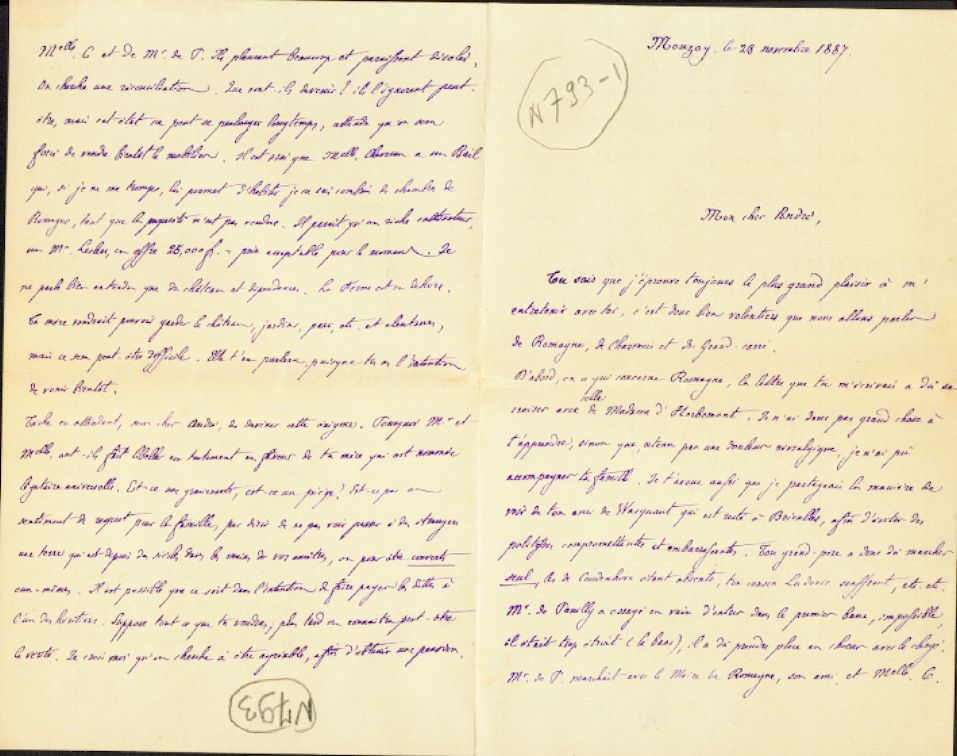 N793-1
Mouzay, le 23 novembre 1887.
Mon cher André,
Tu sais que j'éprouve toujours le plus grand plaisir à m'
entretenir avec toi, c'est donc bien volontiers que nous allons parler
de Romagne, de Chavenois et de Grand-carré.
D'abord, en ce qui concerne Romagne, la lettre que tu m'écrivais a dû se
croiser avec celle de Madame d'Herbemont. Je n'ai donc pas grand chose à
t'apprendre, sinon que, retenu par une douleur névralgique, je n'ai pû
accompagner ta famille. Je t'avoue aussi que je partageais la manière de
voir de ton ami de Wacquant qui est resté à Brieulles, afin d'éviter des
politesses compromettantes et embarrassantes. Ton grand-père a donc dû marcher
seul, les de Coudenhove étant absents, ton cousin Ludovic souffrant, etc. etc.
Mr. de Pouilly a essayé en vain d'entrer dans le premier banc, impossible,
il était trop étroit (le banc), il a dû prendre place au chœur avec le clergé.
Mr. de T. marchait avec le Maire de Romagne, son ami, et Melle. C.
Melle. C et de Mr. de T. Ils pleurent beaucoup et paraissent désolés.
On cherche une réconciliation. Que vont-ils devenir? ils l'ignorent peut-
être, mais cet état ne peut se prolonger longtemps, attendu qu'on sera
forcé de vendre bientôt le mobilier. Il est vrai que Melle. a un Bail
qui, si je ne me trompe, lui permet d'habiter je ne sais combien de chambres de
Romagne, tant que la propriété n'est pas vendue. Il paraît qu'un riche cultivateur,
un Mr. Leclerc, en offre 25,000f. - prix acceptable pour le moment. Je
ne parle bien entendu que du château et dépendances. La Ferme est en dehors.
Ta mère voudrait pouvoir garder le château, jardins, parc, etc. et alentours,
mais ce sera peut-être difficile. Elle t'en parlera puisque tu as l'intention
de venir bientôt.
Tâche en attendant, mon cher André, de deviner cette énigme. Pourquoi Mr. et
Melle. ont-ils fait libeller un testament en faveur de ta mère qui est nommée
légataire universelle. Est-ce une gracieuseté, est-ce un piège? Est-ce par un
sentiment de respect pour la famille, par désir de ne pas voir passer à des étrangers
une terre qui est depuis des siècles dans les mains de vos ancêtres, ou pour être couverts
eux-mêmes. Il est possible que ce soit dans l'intention de faire payer les dettes à
l'un des héritiers. Suppose tout ce que tu voudras; plus tard on connaîtra peut-être
la vérité. Je crois moi qu'on cherche à être agréable, afin d'obtenir une pension.
N793